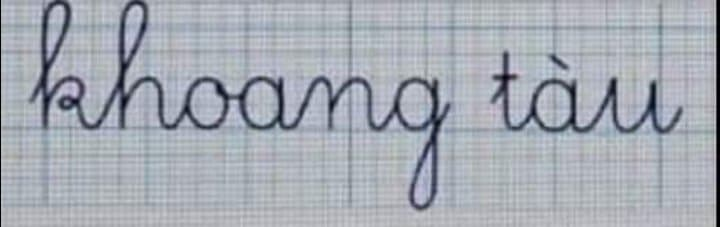 khoang tàu